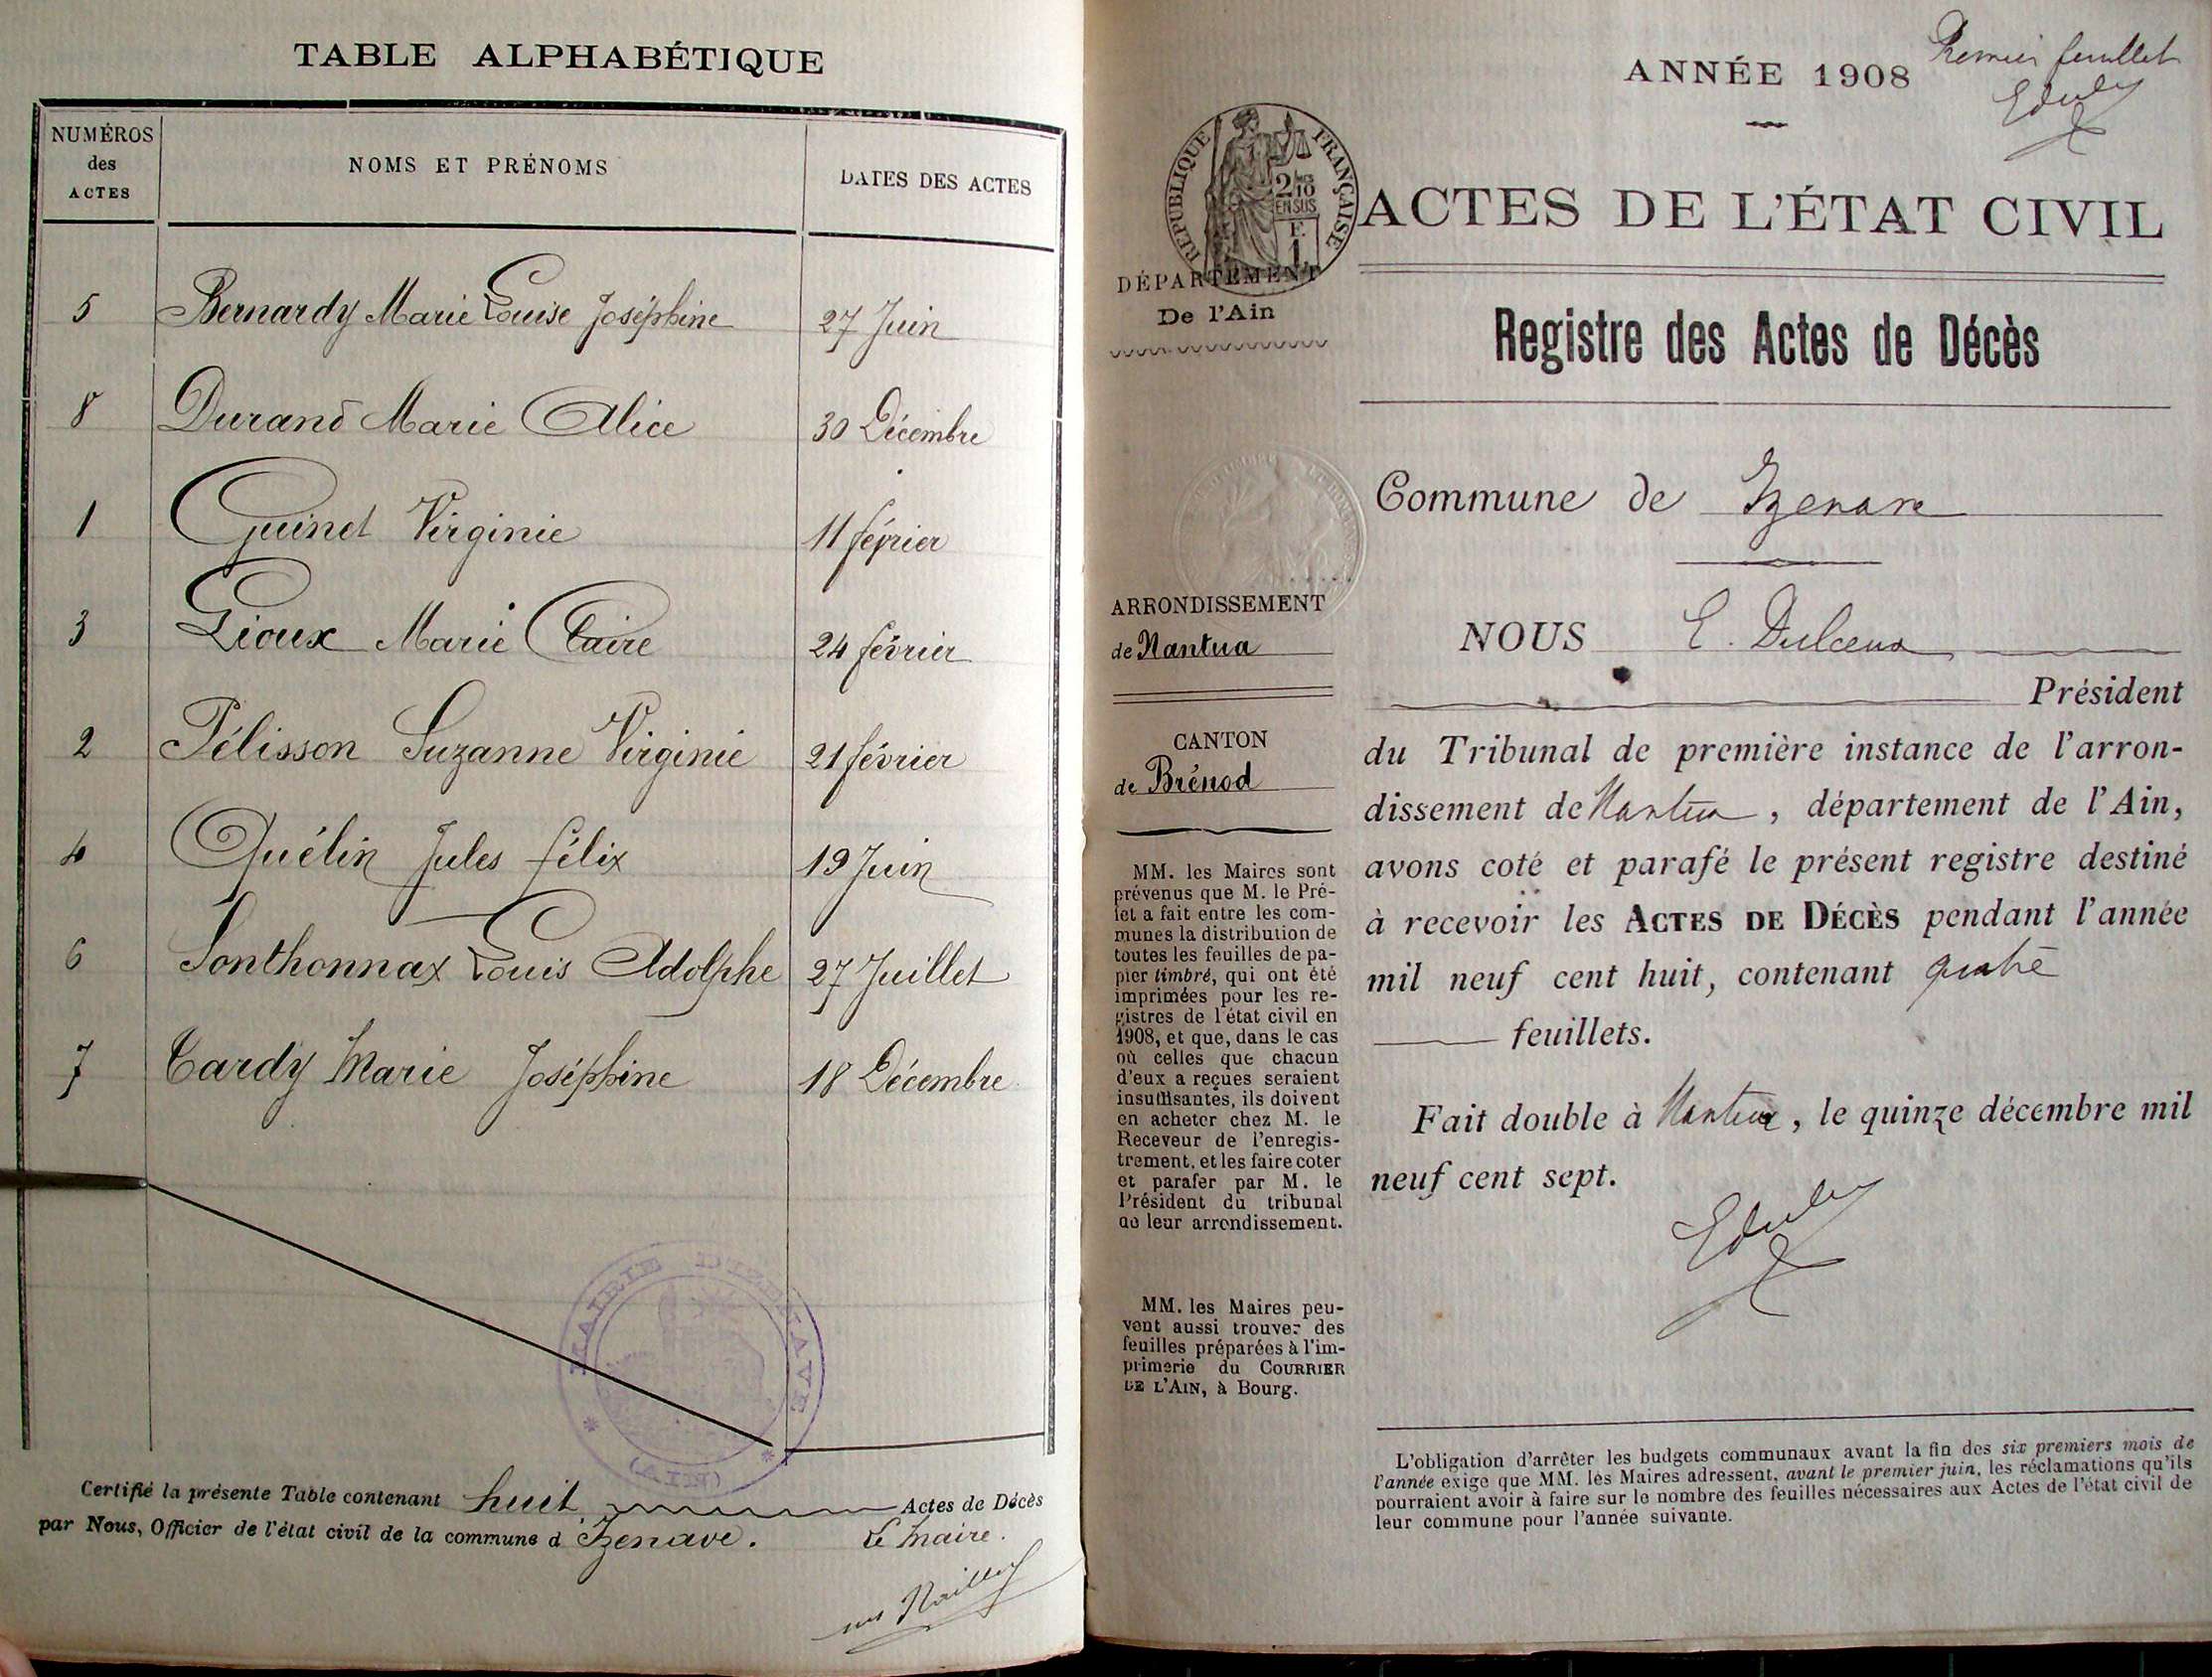 TABLE ALPHABÉTIQUE
NUMÉROS
des
ACTES
NOMS ET PRÉNOMS
DATES DES ACTES
5 Bernardy Marie Louise Joséphine 27 Juin
8 Durand Marie Alice 30 Décembre
1 Guinet Virginie 11 février
3 Lioux Marie Claire 24 février
2 Pélisson Suzanne Virginie 21 février
4 Quélin Jules félix 19 Juin
6 Sonthonnax Louis Adolphe 27 Juillet
7 Tardy Marie Joséphine 18 Décembre
MAIRIE D'IZENAVE
(AIN)
Certifié la présente Table contenant huit Actes de Décès
par Nous, Officier de l'état civil de la commune d Izenave.
Le Maire.
ANNÉE 1908
Premier feuillet
RÉPUBLIQUE FRANÇAISE
2/10
EN SUS
F.
1
ACTES DE L'ÉTAT CIVIL
DÉPARTEMENT
De l'Ain
Registre des Actes de Décès
Commune de Izenave
ARRONDISSEMENT
de Nantua
CANTON
de Brénod
MM. les Maires sont
prévenus que M. le Pré-
fet a fait entre les com-
munes la distribution de
toutes les feuilles de pa-
pier timbré, qui ont été
imprimées pour les re-
gistres de l'état civil en
1908, et que, dans le cas
où celles que chacun
d'eux a reçues seraient
insuffisantes, ils doivent
en acheter chez M. le
Receveur de l'enregis-
trement, et les faire coter
et parafer par M. le
Président du tribunal
de leur arrondissement.
MM. les Maires peu-
vent aussi trouver des
feuilles préparées à l'im-
primerie du COURRIER
DE L'AIN, à Bourg.
NOUS E.
Président
du Tribunal de première instance de l'arron-
dissement de Nantua, département de l'Ain,
avons coté et parafé le présent registre destiné
à recevoir les ACTES DE DÉCÈS pendant l'année
mil neuf cent huit, contenant quatre
feuillets.
Fait double à Nantua, le quinze décembre mil
neuf cent sept.
L'obligation d'arrêter les budgets communaux avant la fin des six premiers mois de
l'année exige que MM. les Maires adressent, avant le premier juin, les réclamations qu'ils
pourraient avoir à faire sur le nombre des feuilles nécessaires aux Actes de l'état civil de
leur commune pour l'année suivante.